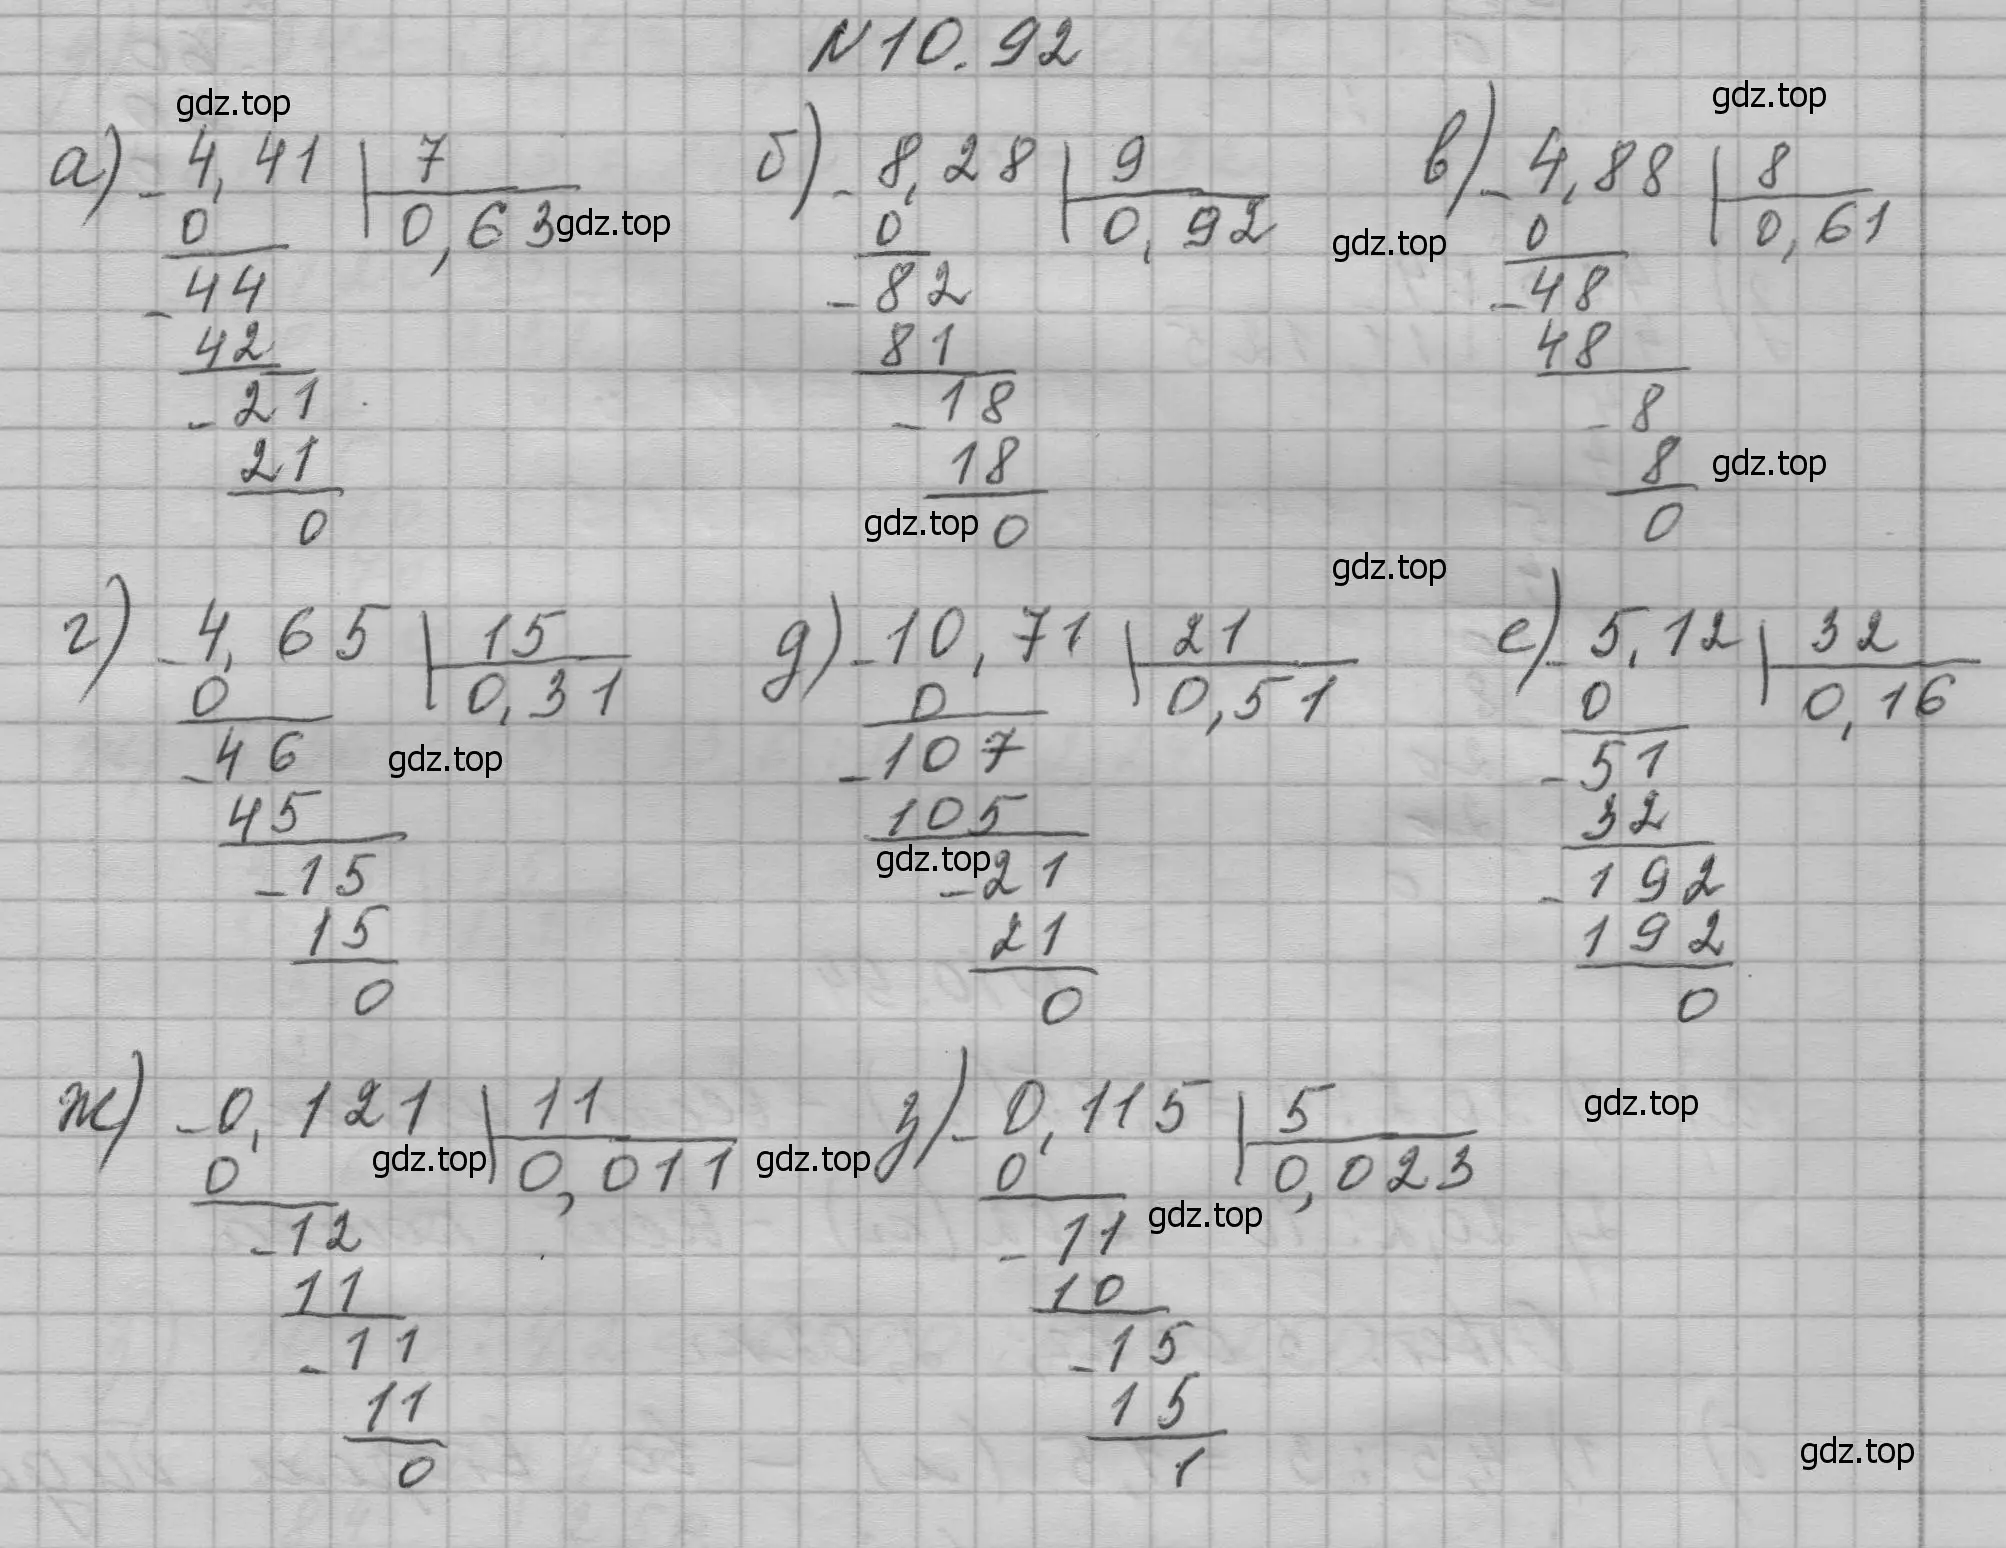 N 10.92
а) - 4,41 | 7
0 0,63
- 44
42
- 21
21
0
б) - 8,28 | 9
0 0,92
- 82
81
- 18
18
0
в) - 4,88 | 8
0 0,61
- 48
48
- 8
8
0
г) - 4,65 | 15
0 0,31
- 46
45
- 15
15
0
д) - 10,71 | 21
0 0,51
- 107
105
- 21
21
0
е) - 5,12 | 32
0 0,16
- 51
32
- 192
192
0
ж) - 0,121 | 11
0 0,011
- 12
11
- 11
11
0
з) - 0,115 | 5
0 0,023
- 11
10
- 15
15
1
gdz.top
gdz.top
gdz.top
gdz.top
gdz.top
gdz.top
gdz.top
gdz.top
gdz.top
gdz.top
gdz.top
gdz.top
gdz.top
gdz.top